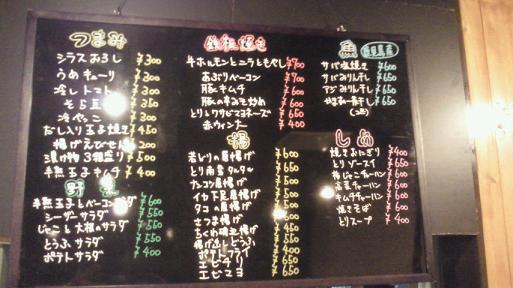 つまみ
シラスおろし ¥300
うめキューリ ¥300
冷しトマト ¥300
そら豆 ¥350
冷やっこ ¥300
だし入り玉子焼き ¥450
揚げえびせん ¥200
漬け物3種盛り ¥500
半熟玉子キムチ ¥400
野菜
半熟玉子とベーコンサラダ ¥600
シーザーサラダ ¥550
じゃこと大根のサラダ ¥550
とうふサラダ ¥550
ポテトサラダ ¥400
鉄板焼き
牛ホルモンとニラともやし ¥700
あぶりベーコン ¥700
豚キムチ ¥600
豚の辛みそ炒め ¥600
とりとワサビマヨネーズ ¥650
赤ウィンナー ¥400
揚
若どりの唐揚げ ¥600
とり南蛮タルタル ¥650
ナンコツ唐揚げ ¥500
イカ下足唐揚げ ¥500
タコの唐揚げ ¥500
さつま揚げ ¥500
ちくわ磯辺揚げ
揚げ出しとうふ
ポテトフライ
エビチリ ¥650
エビマヨ ¥650
魚
サバ塩焼き ¥600
サバみりん干し ¥650
アジみりん干し ¥650
しめ
焼きおにぎり ¥400
とりゾースイ ¥650
じゃこチャーハン ¥600
高菜チャーハン ¥600
キムチチャーハン ¥600
焼きそば ¥600
とりスープ ¥400